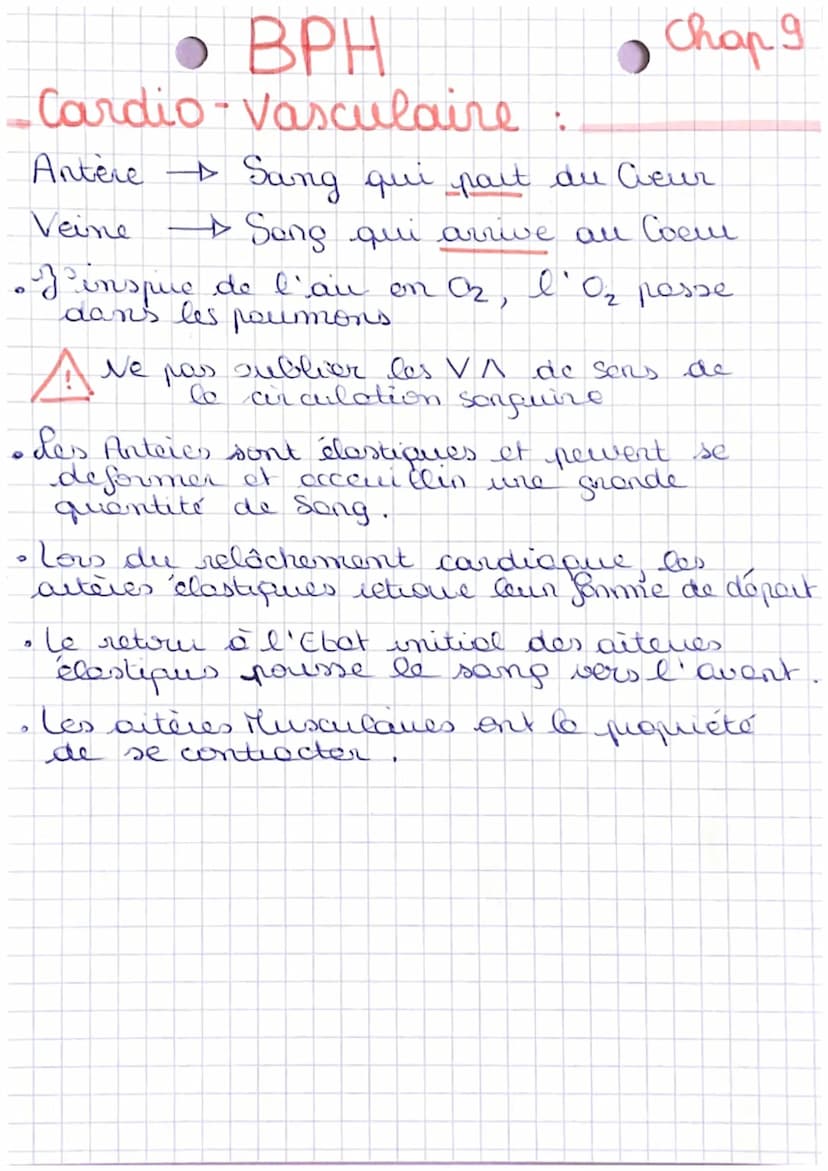 BPH
Chap 9
Cardio-Vasculaire :
Artère → Sang qui part du Cœur
Veine → Sang qui arrive au Coeur
• J'inspire de l'air en O₂, l'O₂ passe
dans les poumons
! Ne pas oublier les V Λ de sens de
la circulation sanguine
• Les Artères sont élastiques et peuvent se
deformer et acceuillir une grande
quantité de Sang.
• Lors du relâchement cardiaque, les
artères élastiques retrouve leur forme de départ
• Le retour à l'Etat initial des artères
élastiques pousse le sang vers l'avant.
• Les artères Musculaires ont la propriété
de se contracter.